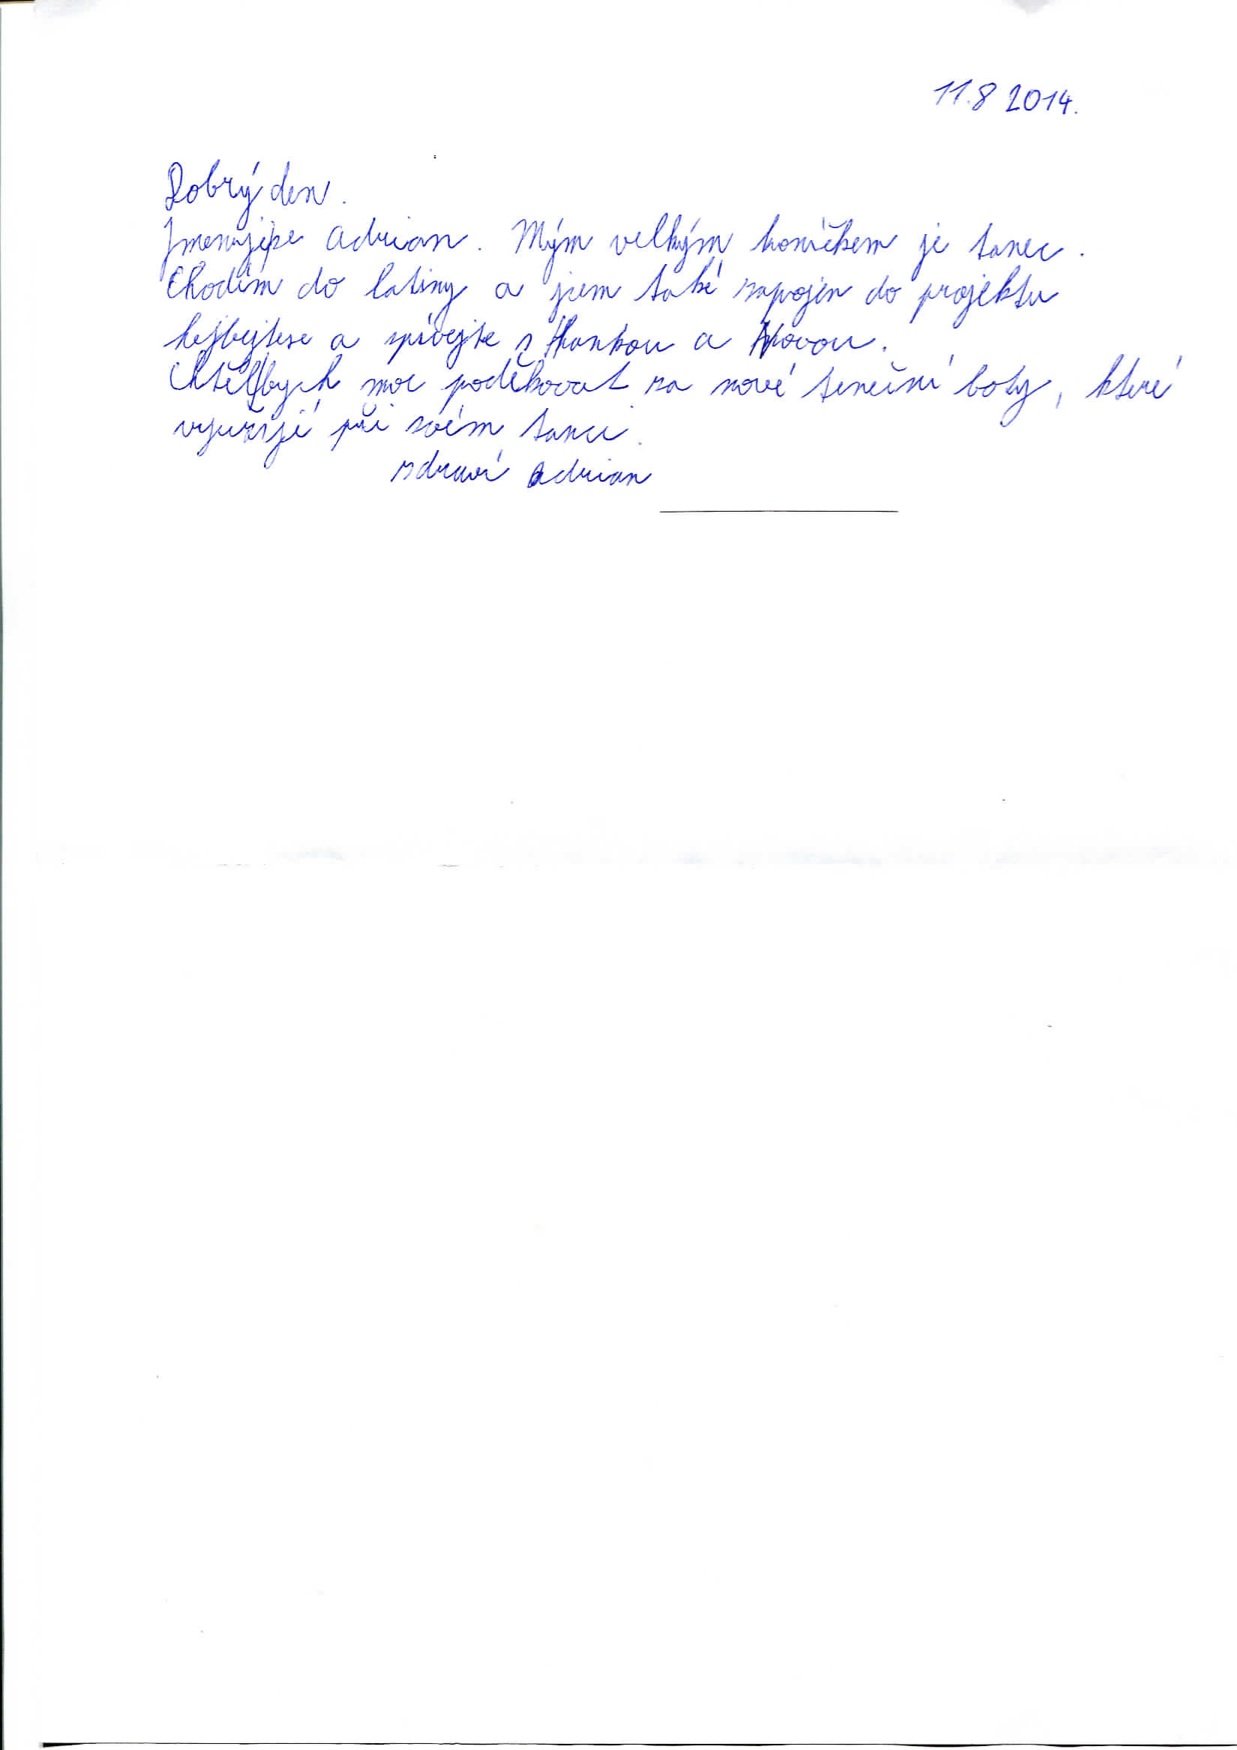 11.8 2014.
Dobrý den.
Jmenujise Adrian. Mým velkým koníčkem je tanec.
Chodím do latiny a jsem také zapojen do projektu
hejbejtese a spívejte s Hankou a Novou.
Chtělbych moc poděkovat za nové taneční boty, které
využijé při svém tanci.
zdraví Adrian